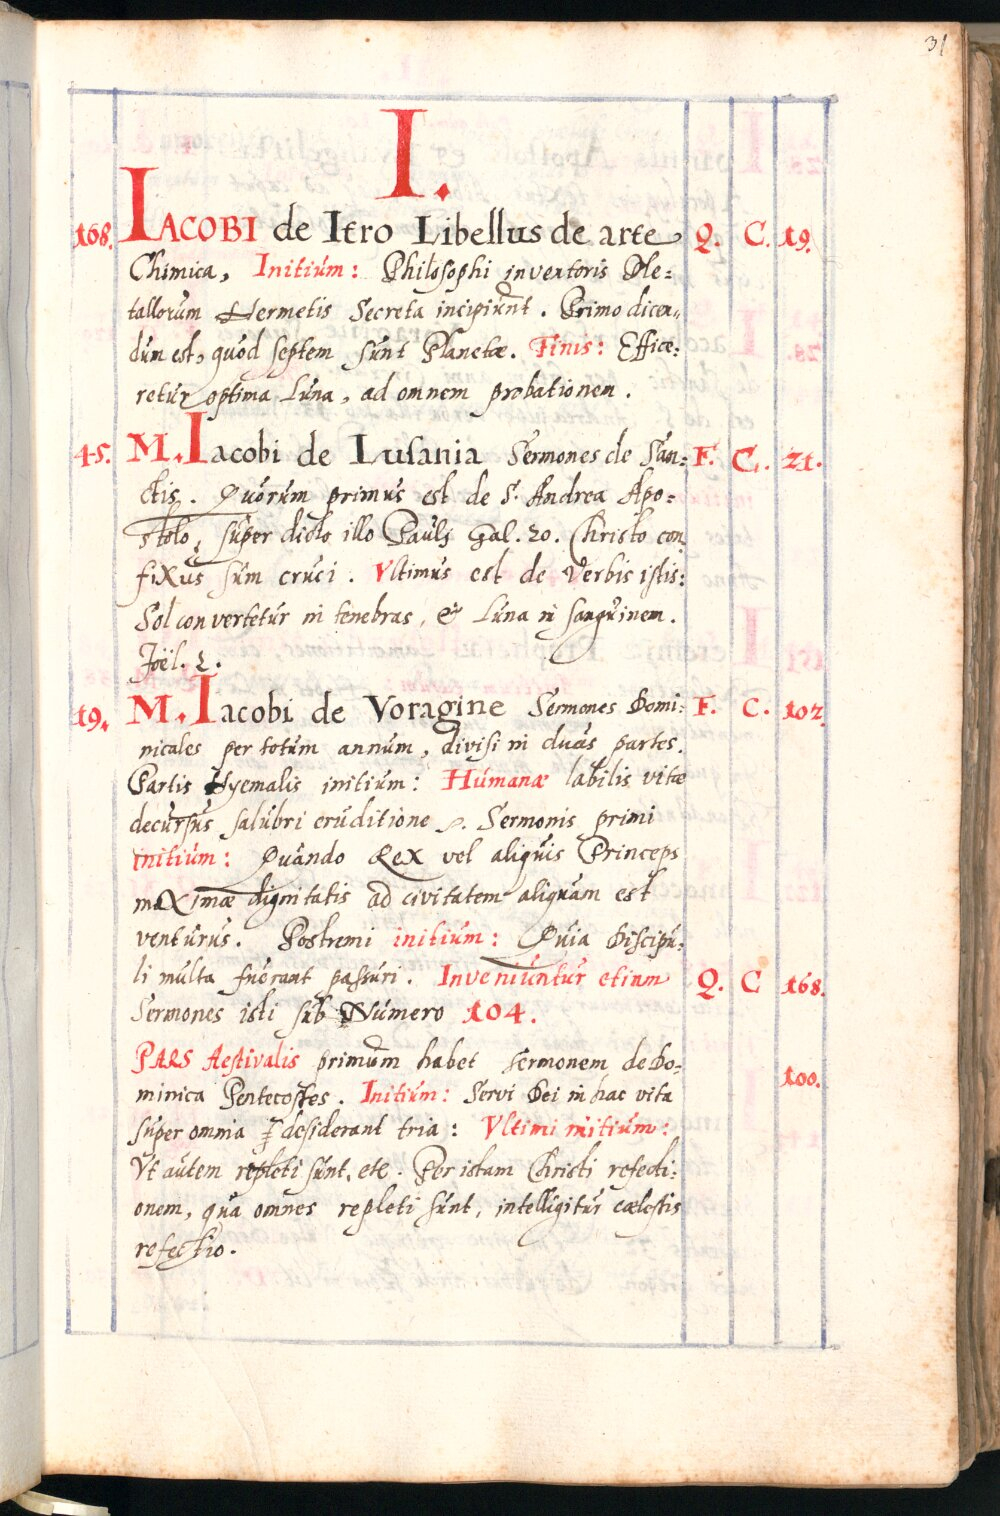 31
I.
168. IACOBI de Itro Libellus de arte Q. C. 19.
Chimica, Initium: Philosophi inventoris Me=
tallorum Hermetis Secreta incipiunt. Primo dicen„
dum est, quod septem sunt Planetæ. Finis: Effice=
retur optima Luna, ad omnem probationem.
45. M. Iacobi de Lusania Sermones de San= F. C. 21.
ctis. Quorum primus est de S. Andrea Apo=
stolo, super dicto illo Pauli Gal. 20. Christo con
fixus sum cruci. Vltimus est de Verbis istis:
Sol convertetur in tenebras, & Luna in sanguinem.
Joël. 2.
19. M. Iacobi de Voragine Sermones Domi= F. C. 102.
nicales per totum annum, divisi in duas partes.
Partis Hyemalis initium: Humanæ labilis vitæ
decursus salubri eruditione. Sermonis primi
initium: Quando Rex vel aliquis Princeps
maximæ dignitatis ad civitatem aliquam est
venturus. Postremi initium: Quia Discipu=
li multa fuerant passuri. Inveniuntur etiam Q. C 168.
Sermones isti sub Numero 104.
PARS Aestivalis primum habet sermonem de Do= 100.
minica Pentecostes. Initium: Servi Dei in hac vita
super omnia desiderant tria: Vltimi initium:
Vt autem repleti sunt, etc. Per istam Christi refecti=
onem, qua omnes repleti sunt, intelligitur cælestis
refectio.